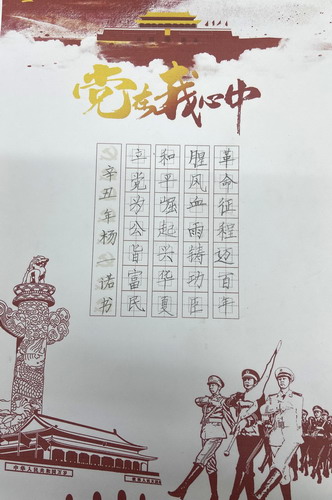 党在我心中
革命征程迈百年
腥风血雨铸功臣
和平崛起兴华夏
立党为公旨富民
辛丑年杨一诺书
中华人民共和国万岁